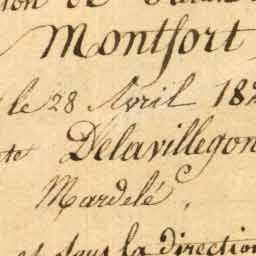 Montfort
le 28 Avril 18
Delavillegon
Mardelé
et dans la direction